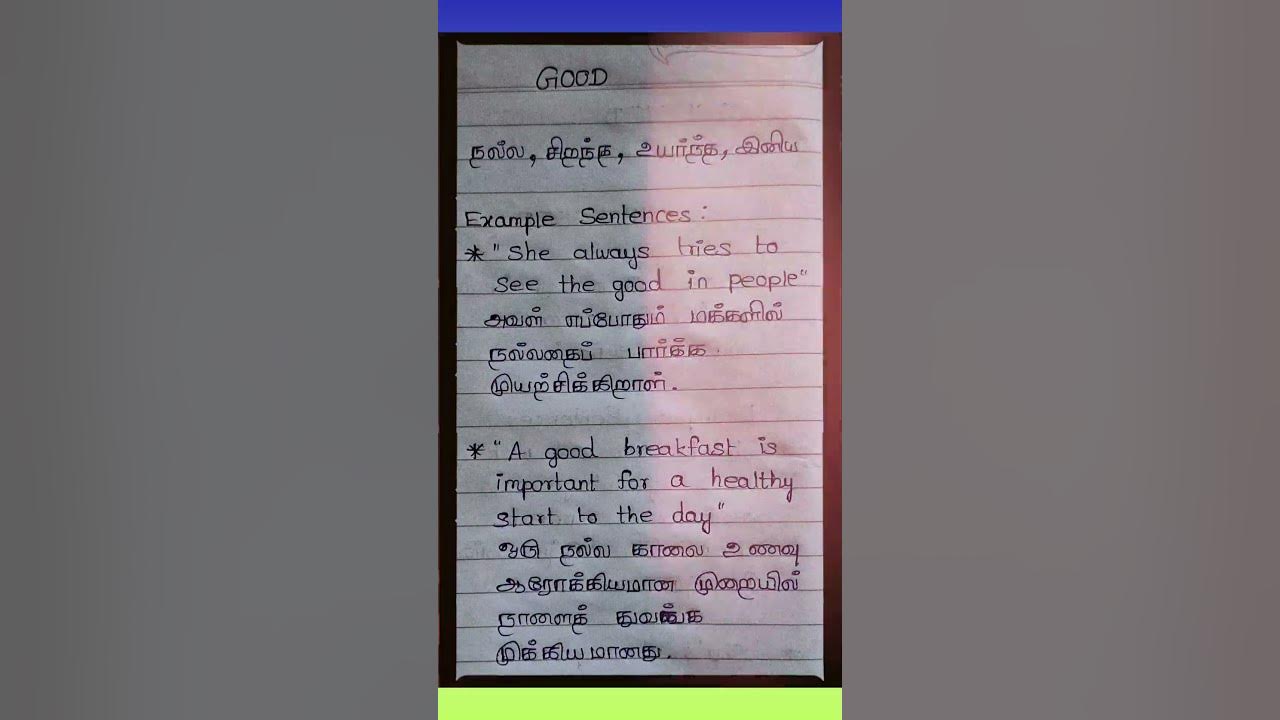 GOOD
நல்ல, சிறந்த, உயர்ந்த, இனிய
Example Sentences:
* "She always tries to
see the good in people"
அவள் எப்போதும் மக்களில்
நல்லதைப் பார்க்க
முயற்சிக்கிறாள்.
* "A good breakfast is
important for a healthy
start to the day"
ஒரு நல்ல காலை உணவு
ஆரோக்கியமான முறையில்
நாளைத் துவங்க
முக்கியமானது.